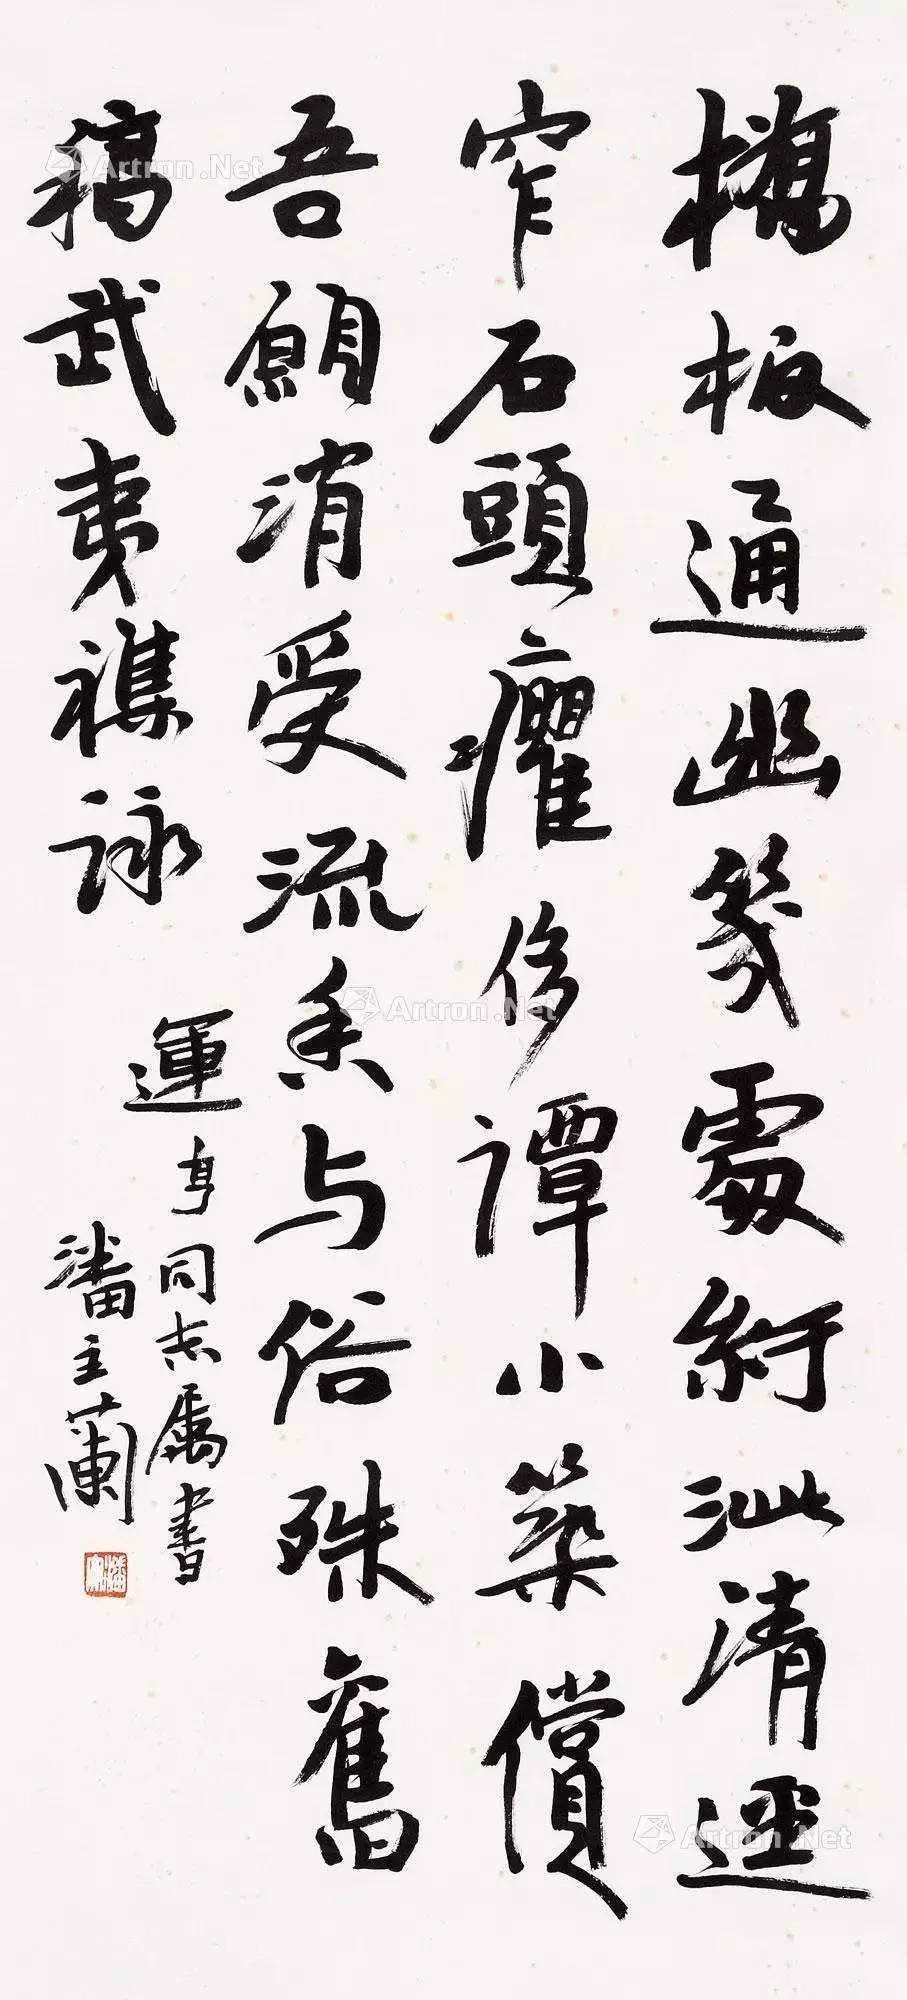 橋板通幽幾處紆泚清逕
窄石頭癯侈譚小築償
吾願消受流香与俗殊舊
稿武夷襍詠
運亨同志属書
潘主蘭
Artron.Net
Artron.Net
Artron.Net